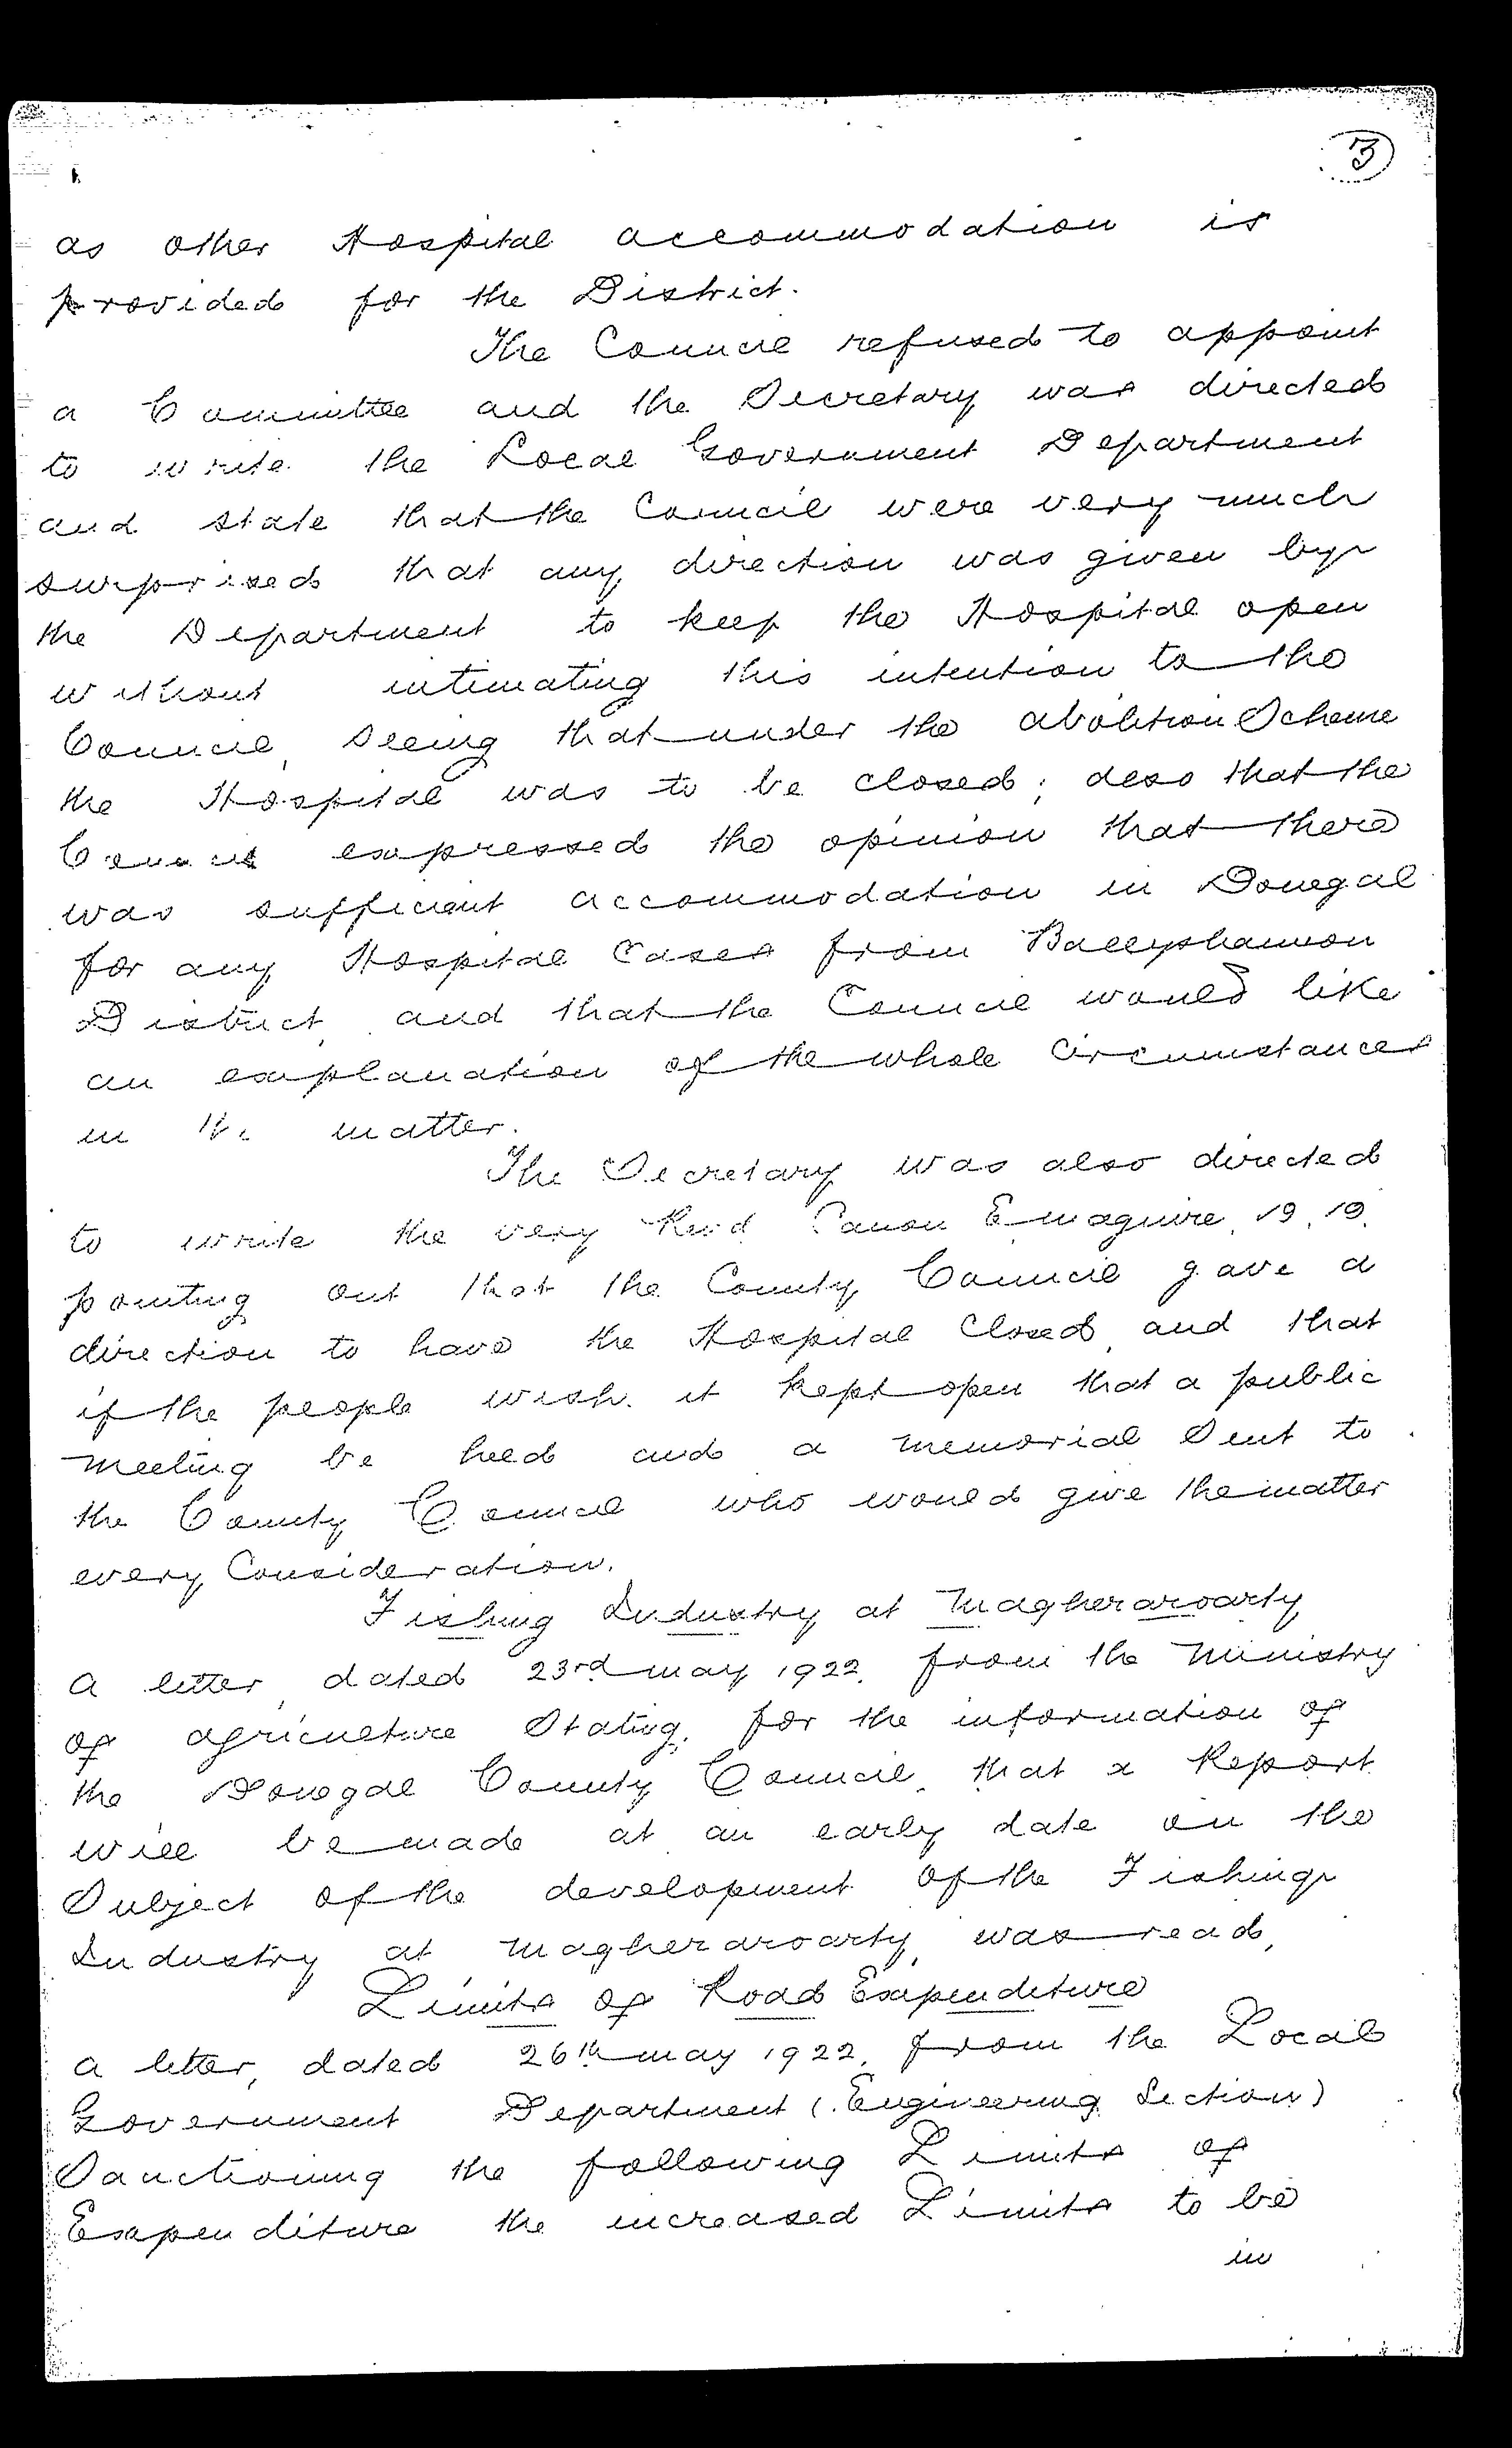 3
as other Hospital accommodation is
provided for the District.
The Council refused to appoint
a Committee and the Secretary was directed
to write the Local Government Department
and state that the Council were very much
surprised that any direction was given by
the Department to keep the Hospital open
without intimating this intention to the
Council, seeing that under the abolition Scheme
the Hospital was to be closed; also that the
Council expressed the opinion that there
was sufficient accommodation in Donegal
for any Hospital Cases from Ballyshannon
District, and that the Council would like
an explanation of the whole Circumstances
in the matter.
The Secretary was also directed
to write the very Revd Canon E Maguire, P.P.
pointing out that the County Council gave a
direction to have the Hospital Closed, and that
if the people wish it kept open that a public
meeting be held and a memorial Sent to
the County Council who would give the matter
every Consideration.
Fishing Industry at Magheraroarty
A letter, dated 23rd May 1922, from the Ministry
of Agriculture Stating, for the information of
the Donegal County Council, that a Report
will be made at an early date on the
Subject of the development of the Fishing
Industry at Magheraroarty, was read.
Limits of Road Expenditure
A letter, dated 26th May 1922, from the Local
Government Department (Engineering Section)
Sanctioning the following Limits of
Expenditure the increased Limits to be
in